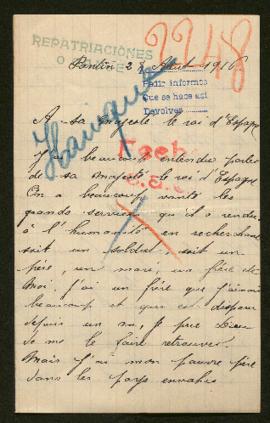 2248
REPATRIACIONES
Pantin 28 Août 1916
Pedir informes
Que se hace así
Devolver
A Sa majesté le roi d'Espagne
J'ai beaucoup entendu parler
de sa Majesté le roi d'Espagne
On a beaucoup vanté les
grands services qu'il a rendu
à l'humanité en recherchant
soit un soldat, soit un
père, un mari, un frère etc
Moi j'ai un frère que j'aimais
beaucoup et qui est disparu
depuis un an, je prie Dieu
de me le faire retrouver.
Mais j'ai mon pauvre père
dans les pays envahis